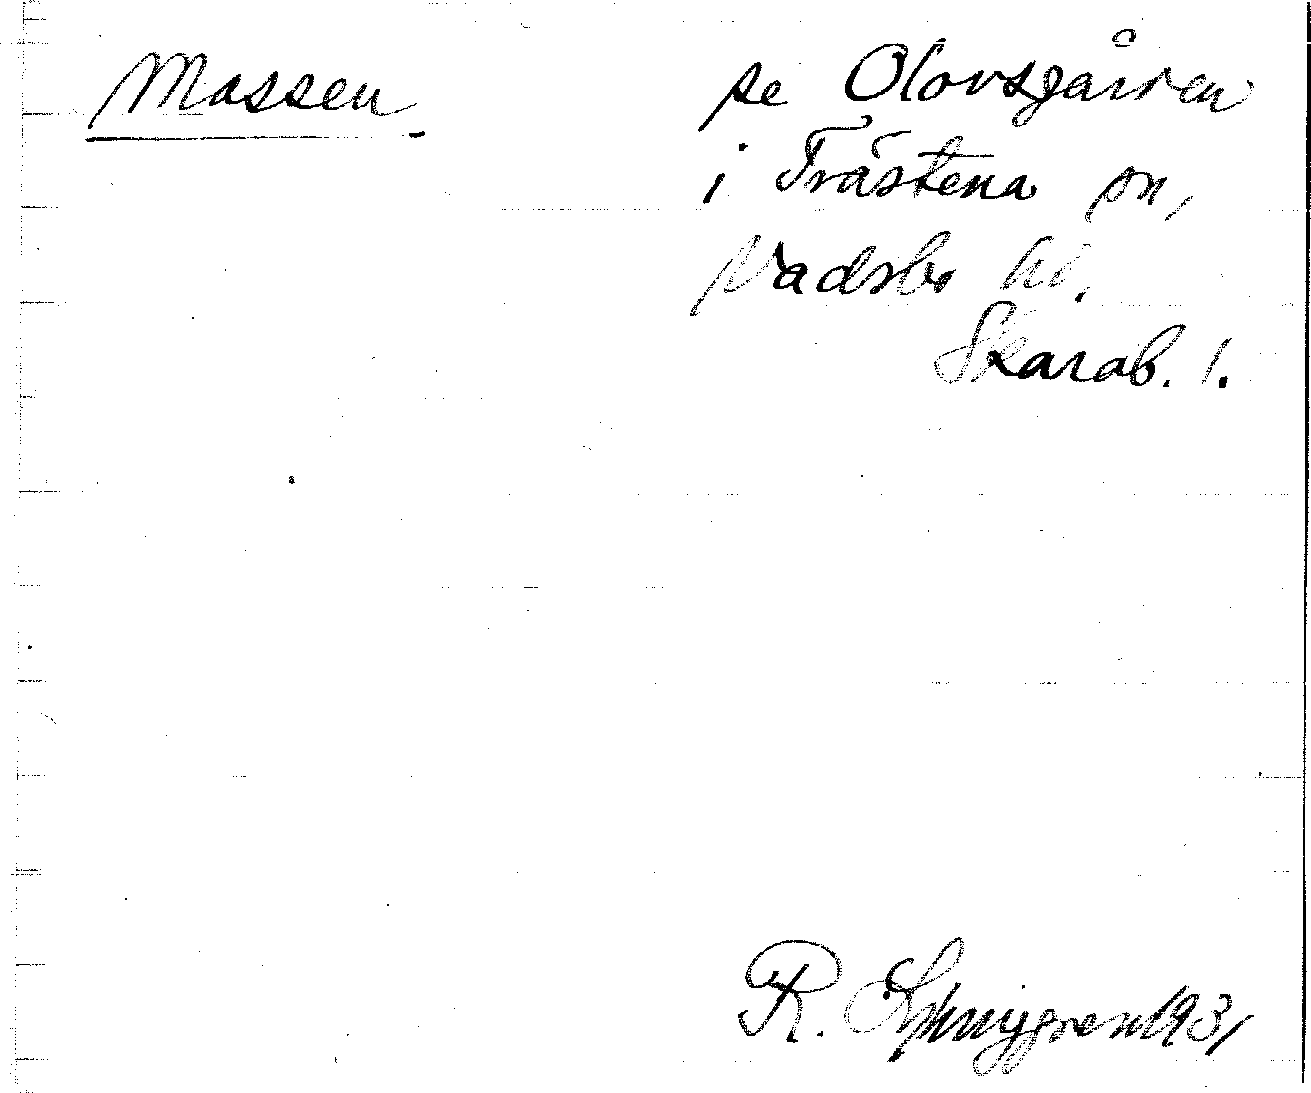 Mossen
se Olovsgården
i Trästena sn,
Vadsbo hd.
Skarab. l.
R. Ljunggren 1931